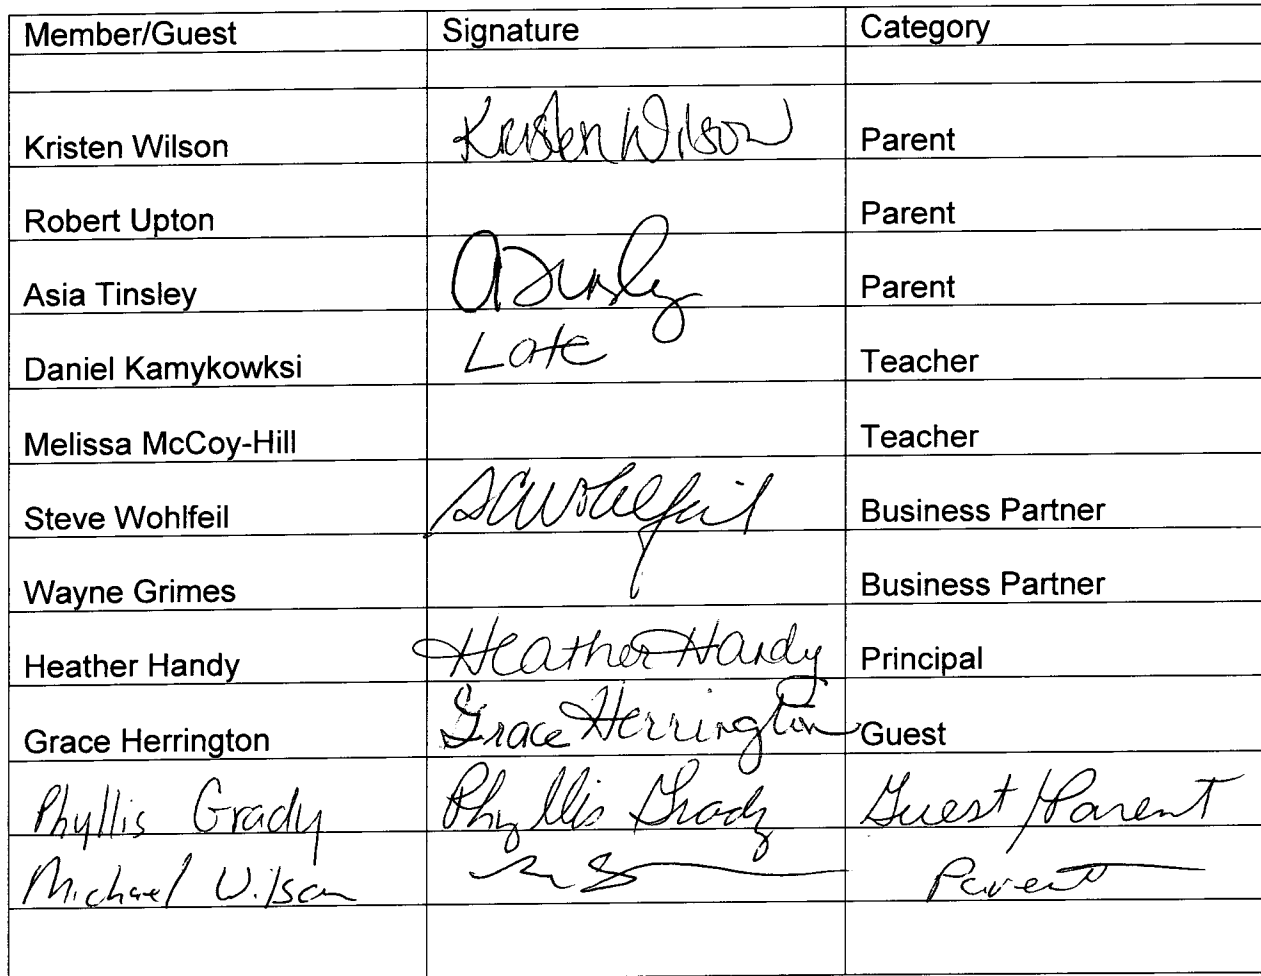 Member/Guest Signature Category
Kristen Wilson Kristen Wilson Parent
Robert Upton Parent
Asia Tinsley ATinsley Parent
Daniel Kamykowksi Late Teacher
Melissa McCoy-Hill Teacher
Steve Wohlfeil SCWohlfeil Business Partner
Wayne Grimes Business Partner
Heather Handy Heather Handy Principal
Grace Herrington Grace Herrington Guest
Phyllis Grady Phyllis Grady Guest/Parent
Michael Wilson Parent